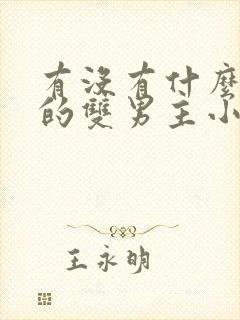 有沒有什麼
的雙男主小
王永明